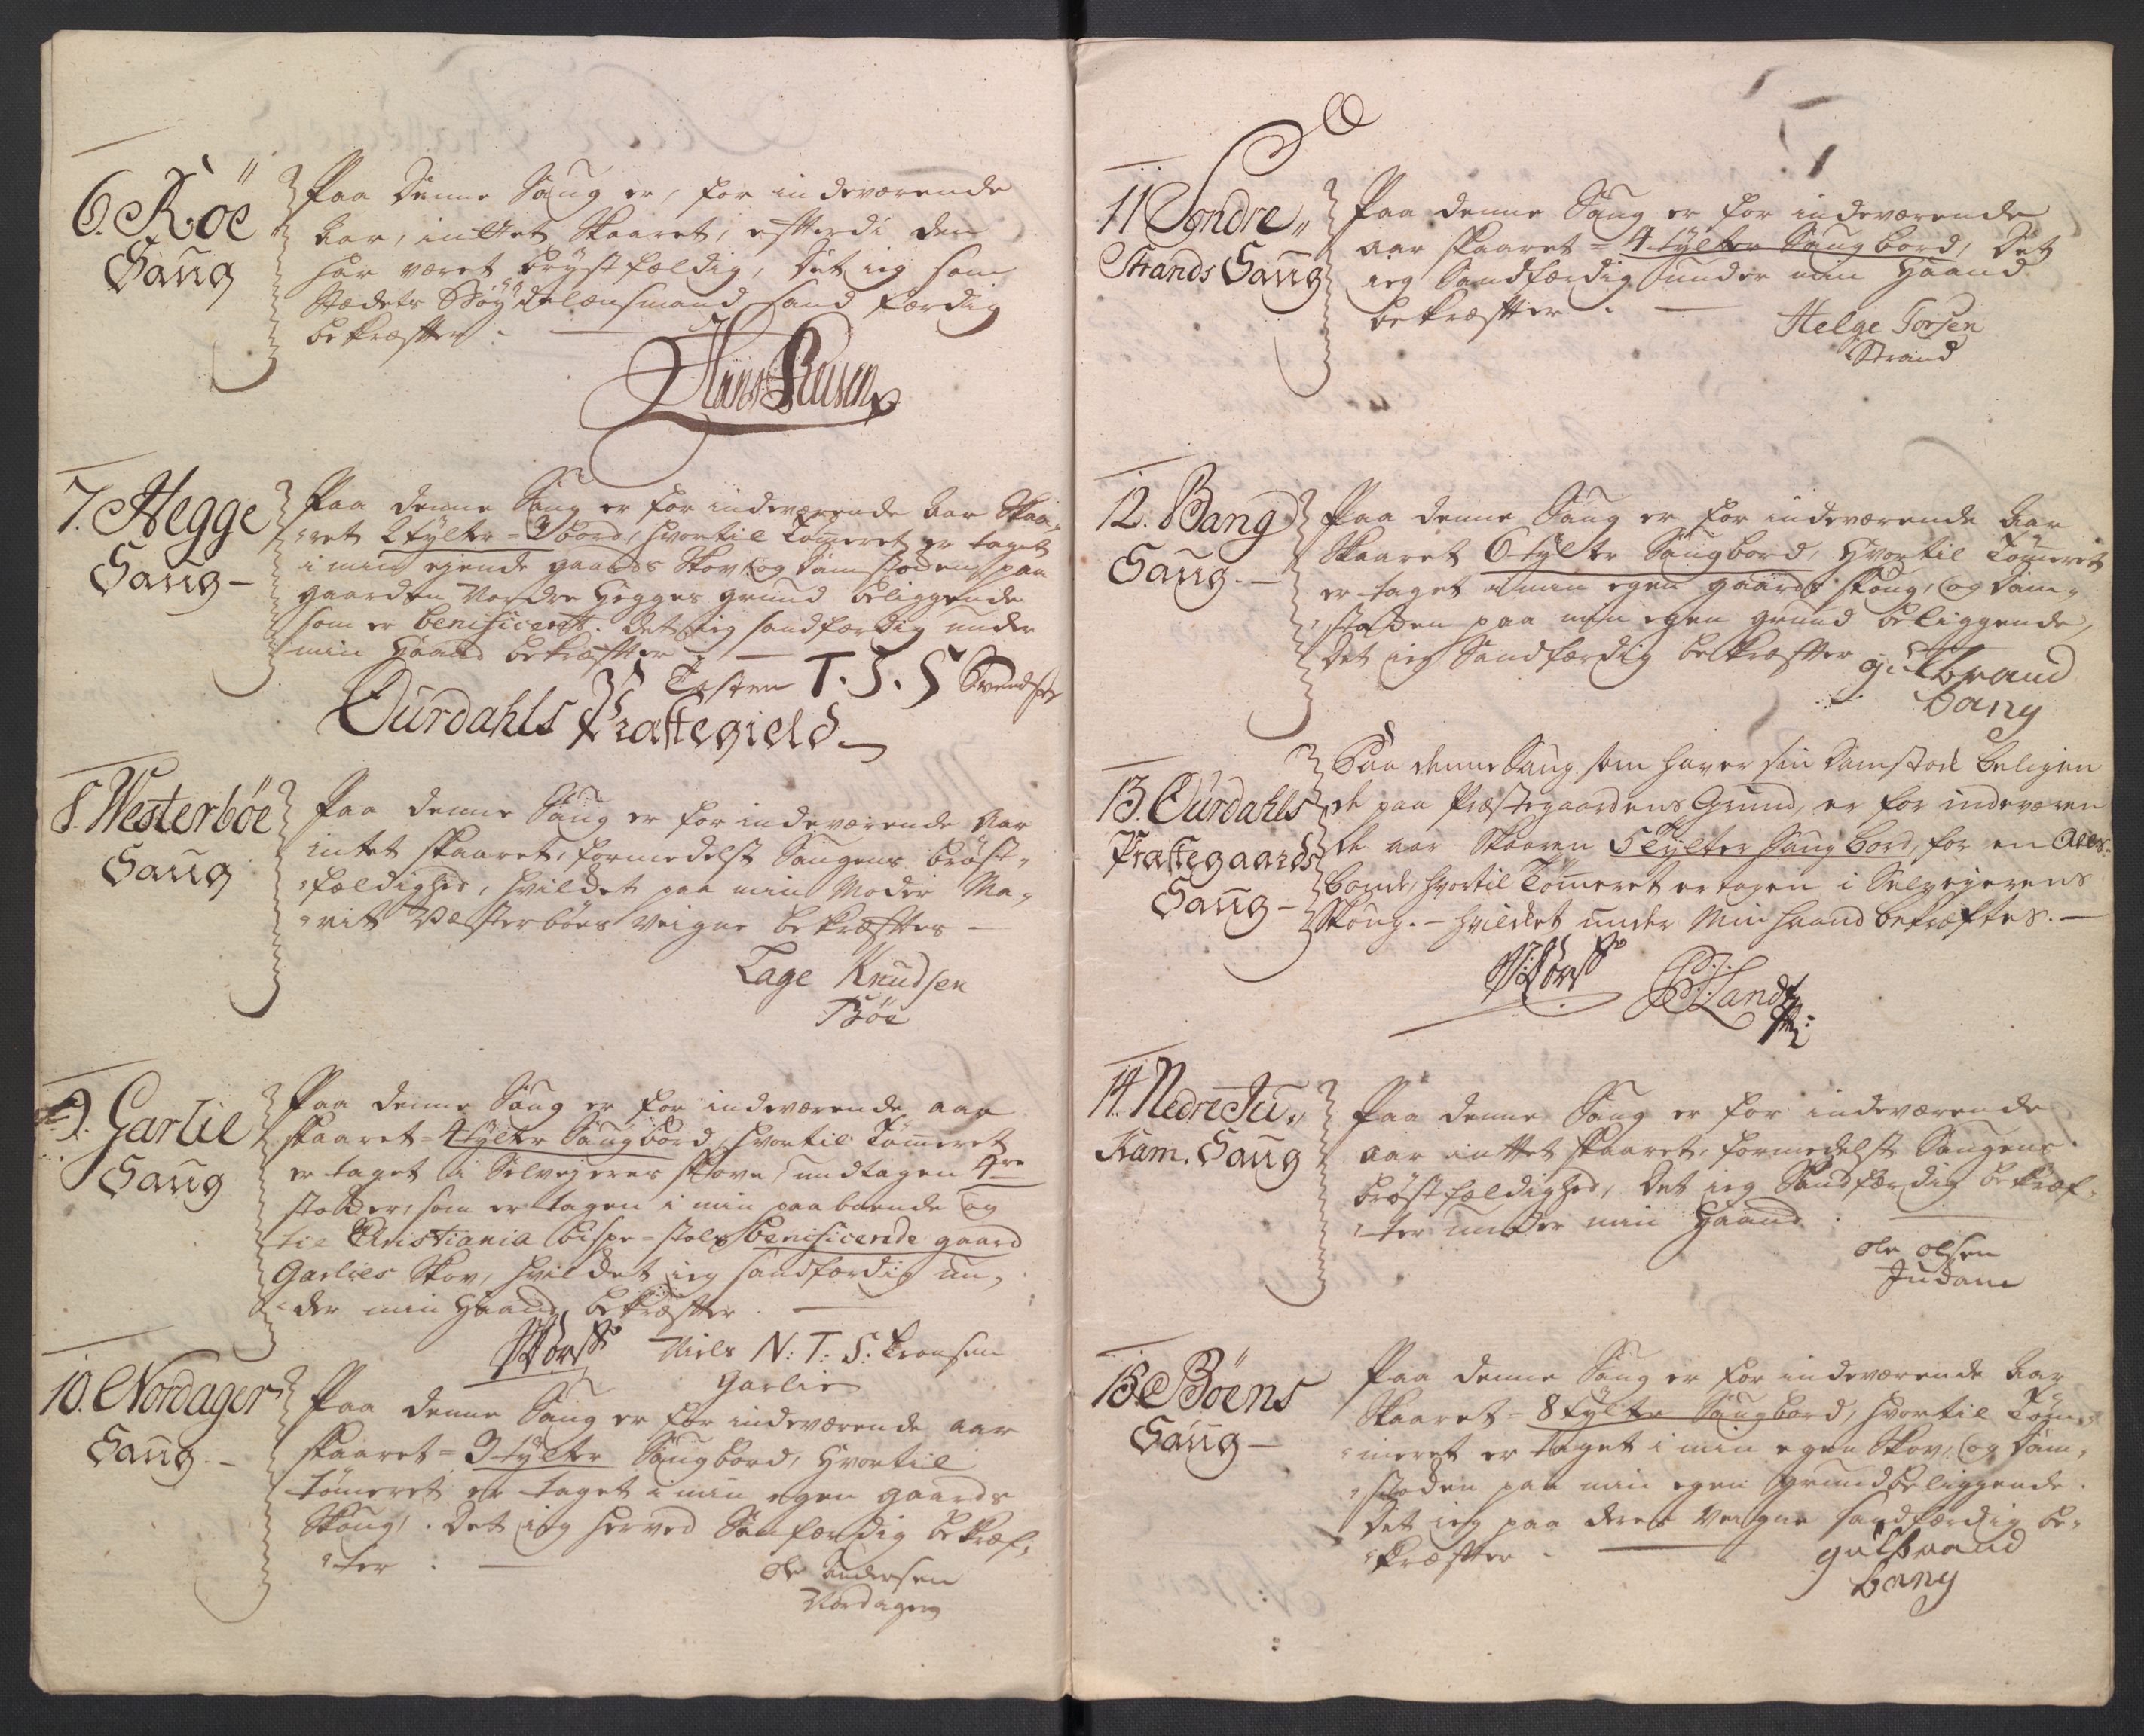 6. Röe
Saug
Paa denne Saug er, for indeværende
Aar, inttet Skaaret, efterdi den
har været brystfældig, Det ieg som
Stædets Bøydelænsmand sand færdig
bekræfter.
Hans
7. Hegge
Saug
Paa denne Saug er for indeværende Aar Skaa-
ret 2 tylter = 3 bord, hvortil Tömeret er taget
i min ejende gaards Skov, og Damstoden paa
gaarden Nordre Hegges grund beliggende
som er benificeret. Det ieg sandfærdig under
min Haand bekræfter
Tosten T. S. S Svendsen
Ourdahls Præstegield
8. Westerböe
Saug
Paa denne Saug er for indeværende Aar
intet skaaret, formedelst Saugens bröst-
fældighed, hvildet paa min Moder Ma-
rit Vesterböes veigne bekræfftes
Tage Knudsen
Böe
9. Garlie
Saug
Paa denne Saug er for indeværende aar
skaaret = 4 tylter Saugbord, hvortil Tömeret
er taget i Selvejeres skove, undtagen 4re
stokker, som er tagen i min paaboende og
til Christiania bispe-stols benificerede gaard
Garlies Skov, hvildet ieg sandfærdig un-
der min Haand bekræfter.
Niels N: T: S: Tronsen
Garlie
10. Nordager
Saug
Paa denne Saug er for indeværende aar
skaaret = 3 tylter Saugbord, Hvortil
tömeret er taget i min egen gaards
Skoug, Det ieg herved Sanfærdig bekræf-
ter
Ole Andersen
Nordager
11 Söndre
Strands Saug
Paa denne Saug er for indeværende
aar skaaret = 4 tylter Saugbord, Det
ieg Sandfærdig under min Haand
bekræftter
Helge Torsen
Strand
12. Bang
Saug.
Paa denne Saug er for indeværende Aar
Skaaret 6 tylter Saugbord, Hvortil Tömeret
er taget i min egen gaards skoug, og Dam-
stoden paa min egen grund beliggende,
Det ieg Sandfærdig bekræfter
gulbrand
bang
13. Ourdahls
Præstegaards
Saug
Paa denne Saug som haver sin Damstod beligen
de paa Præstegaardens Grund, er for indeværen
de aar Skaaren 5 Tylter Saug Bord, for en
bonde, hvortil Tömeret er tagen i Selvejerens
Skoug. hvilket under Min haand bekræftes.
14. Nedre Ju-
kam. Saug
Paa denne Saug er for indeværende
aar inttet skaaret, formedelst Saugens
bröstfældighed, Det ieg Sandfærdig bekræf-
ter under min Haand
ole olsen
Judam
15. Böens
Saug
Paa denne Saug er for indeværende Aar
Skaaret = 8 tylter Saugbord, hvortil Töm-
meret er taget i min egen Skov, og Dam-
stoden paa min egen grund beliggende.
Det ieg paa deres veigne sandfærdig be-
kræfter
gulbrand
bang